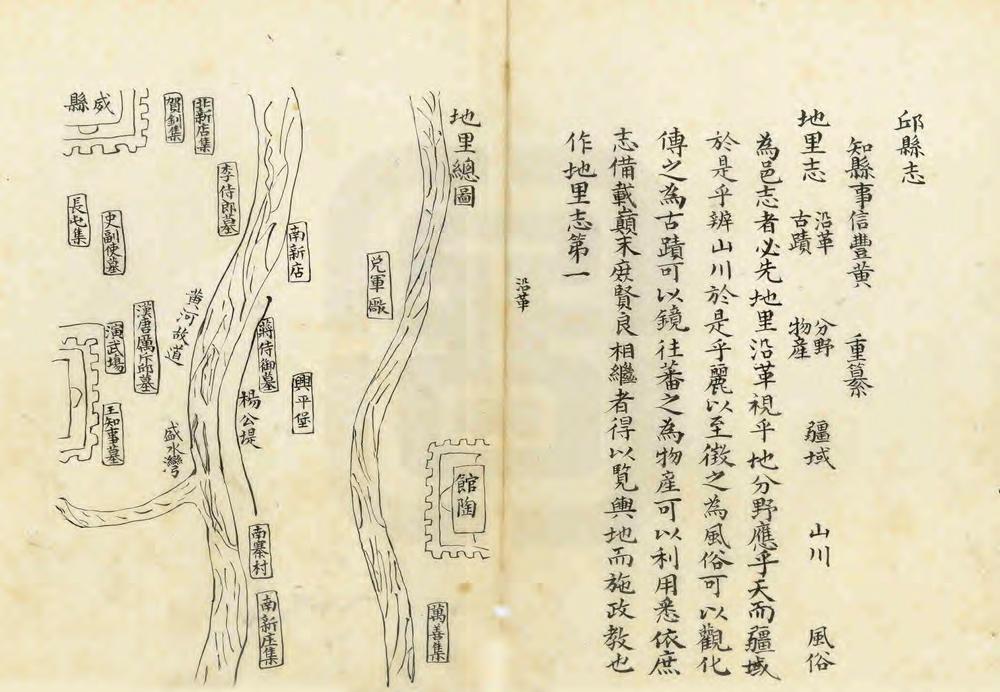 邱縣志
知縣事信豐黃 重纂
地里志 沿革 古蹟 分野 物產 疆域 山川 風俗
為邑志者必先地里沿革視乎地分野應乎天而疆域
於是乎辨山川於是乎麗以至徵之為風俗可以觀化
傳之為古蹟可以鏡往蕃之為物產可以利用悉依庶
志備載巔末庶賢良相繼者得以覧輿地而施政教也
作地里志第一
沿革
地里總圖
館陶
萬善集
兌軍厫
南新店
興平堡
蔣侍御墓
楊公堤
南寨村
南新庄集
李侍郎墓
北新店集
賀釗集
威縣
黃河故道
盛水灣
漢唐厲斥邱墓
史副使墓
長屯集
演武場
王知事墓